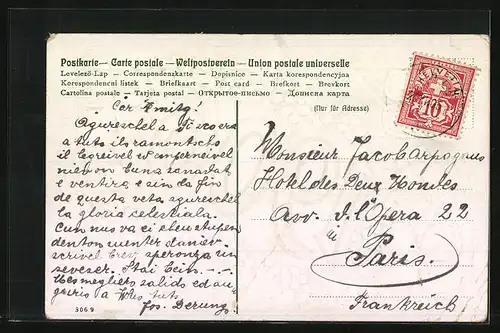 Postkarte — Carte postale — Weltpostverein — Union postale universelle
Levelező-Lap — Correspondenzkarte — Dopisnice — Karta korespondencyjna
Korespondencni listek — Briefkaart — Post card — Brefkort — Brevkort
Cartolina postale — Tarjeta postal — ОТКРЫТОЕ-ПИСЬМО — Дописна карта
(Nur für Adresse)
HELVETIA
10
Car Amitg!
Agureschel a
a tuts ils ramontschs
il legreivel
niev on buna sanadat
e ventira e ain la fin
de questa veta agureschel
la gloria celestiala.
Cun nus va ei
denton
scrivel speronza
Stai bein - - -
Mes megliers salids ed au-
guris a tuts
Jos. Derungs.
3069
Monsieur Jacob Arpagaus
Hotel des Deux Mondes
Avv. d. l'Opera 22
Paris.
Frankreich